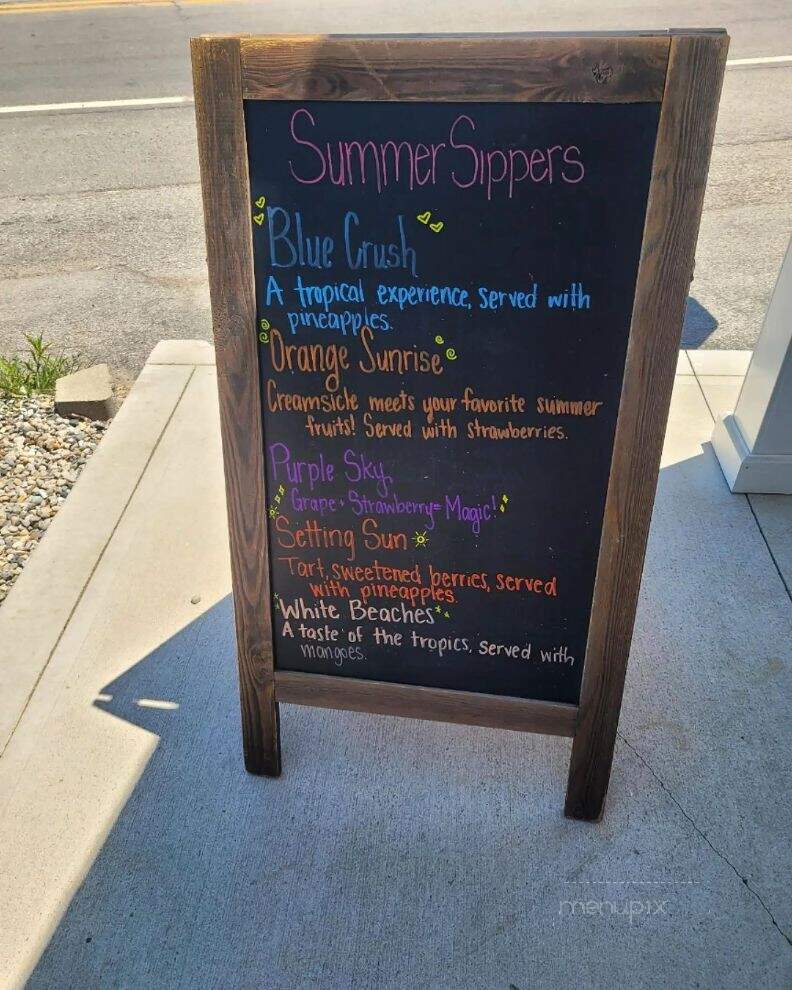 Summer Sippers
Blue Crush
A tropical experience, served with
pineapples.
Orange Sunrise
Creamsicle meets your favorite summer
fruits! Served with strawberries.
Purple Sky
Grape + Strawberry = Magic!
Setting Sun
Tart, sweetened berries, served
with pineapples.
White Beaches
A taste of the tropics, served with
mangoes.
menupix